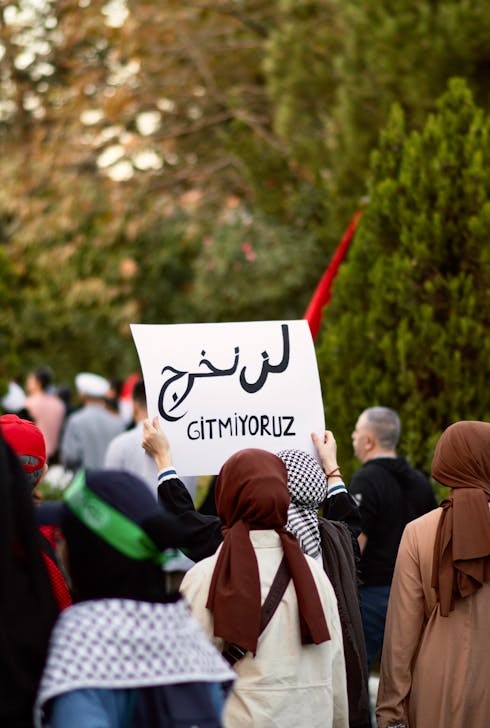 لن نخرج
GiTMiYORUZ